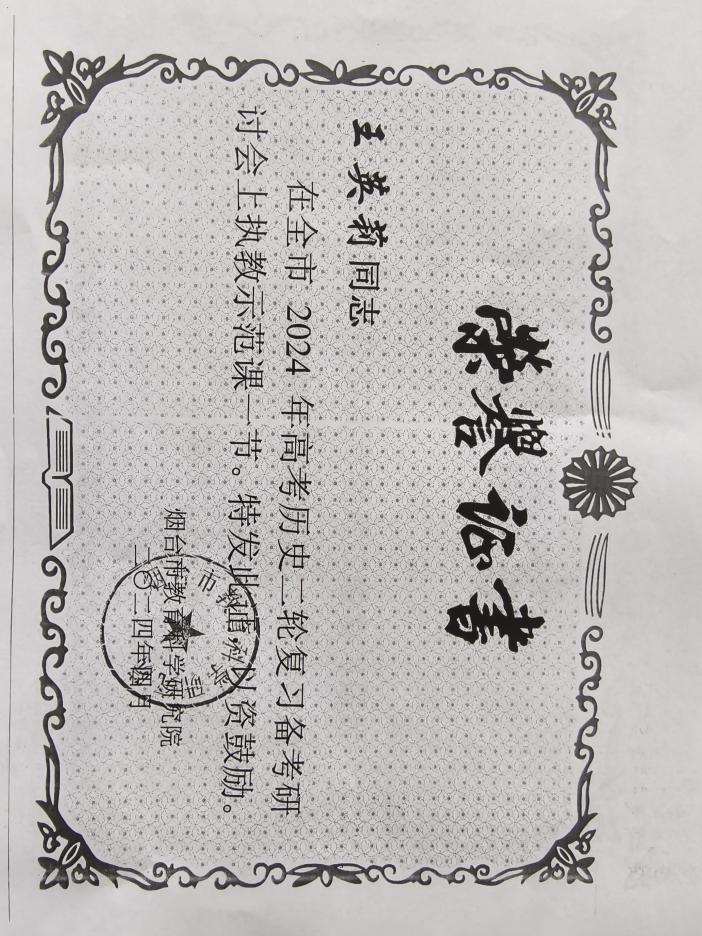 荣誉证书
王英莉同志
在全市 2024 年高考历史二轮复习备考研
讨会上执教示范课一节。特发此证，以资鼓励。
烟台市教育科学研究院
二〇二四年四月